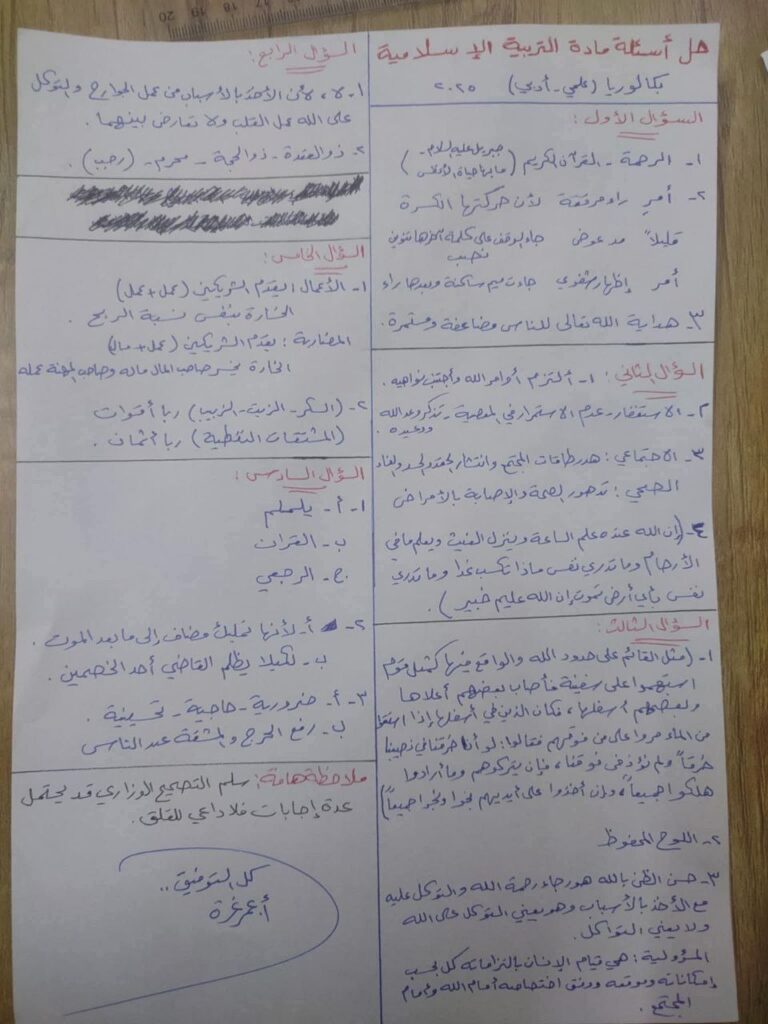 حل أسئلة مادة التربية الإسلامية
بكالوريا (علمي - أدبي) ٢٠٢٥
السؤال الأول:
١- الرحمة - القرآن الكريم (جبريل عليه السلام - ما بها حياة الأنفس)
٢- أمرِ راء مرققة لأن حركتها الكسرة
قليلاً مد عوض جاء الوقف على كلمة آخرها تنوين نصب
أمر إظهار شفوي جاءت ميم ساكنة وبعدها راء
٣- هداية الله تعالى للناس مضاعفة ومستمرة.
السؤال الثاني: ١- ألتزم أوامر الله وأجتنب نواهيه.
٢- الاستغفار - عدم الاستمرار في المعصية - تذكر وعد الله ووعيده.
٣- الاجتماعي: هدر طاقات المجتمع وانتشار الحقد والحسد والفساد
الصحي: تدهور الصحة والإصابة بالأمراض
٤- (إن الله عنده علم الساعة وينزل الغيث ويعلم ما في
الأرحام وما تدري نفس ماذا تكسب غدا وما تدري
نفس بأي أرض تموت إن الله عليم خبير).
السؤال الثالث:
١- (مثل القائم على حدود الله والواقع فيها كمثل قوم
استهموا على سفينة فأصاب بعضهم أعلاها
وبعضهم أسفلها، فكان الذين في أسفلها إذا استقوا
من الماء مروا على من فوقهم فقالوا: لو أنا خرقنا في نصيبنا
خرقاً ولم نؤذ من فوقنا، فإن يتركوهم وما أرادوا
هلكوا جميعاً، وإن أخذوا على أيديهم نجوا ونجوا جميعاً)
٢- اللوح المحفوظ
٣- حسن الظن بالله هو رجاء رحمة الله والتوكل عليه
مع الأخذ بالأسباب وهو يعني التوكل على الله
ولا يعني التواكل.
المسؤولية: هي قيام الإنسان بالتزاماته كل بحسب
إمكاناته وموقعه ووفق اختصاصه أمام الله وأمام
المجتمع.
السؤال الرابع:
١- لا، لأن الأخذ بالأسباب من عمل الجوارح والتوكل
على الله عمل القلب ولا تعارض بينهما.
٢- ذو القعدة - ذو الحجة - محرم - (رجب).
السؤال الخامس:
١- الأعمال: يقدم الشريكين (عمل + عمل)
الخسارة بنفس نسبة الربح.
المضاربة: يقدم الشريكين (عمل + مال)
الخسارة يخسر صاحب المال ماله وصاحب المهنة عمله
٢- (السكر - الزيت - الزبيب) ربا أقوات
(المشتقات النفطية) ربا أثمان.
السؤال السادس:
١- أ- يلملم
ب- القران
ج- الرجعي
٢- أ- لأنها تمليك مضاف إلى ما بعد الموت.
ب- لكيلا يظلم القاضي أحد الخصمين.
٣- أ- ضرورية - حاجية - تحسينية.
ب- رفع الحرج والمشقة عند الناس
ملاحظة هامة: سلم التصحيح الوزاري قد يحتمل
عدة إجابات فلا داعي للقلق.
كل التوفيق..
أ. عمر غرة